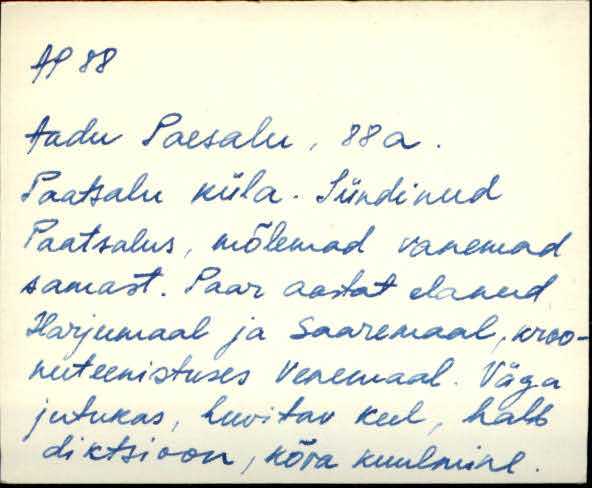 AP 88
Aadu Paesalu, 88 a.
Paatsalu küla. Sündinud
Paatsalus, mõlemad vanemad
samast. Paar aastat elanud
Harjumaal ja Saaremaal, kroo-
nuteenistuses Venemaal. Väga
jutukas, huvitav keel, halb
diktsioon, kõva kuulmine.